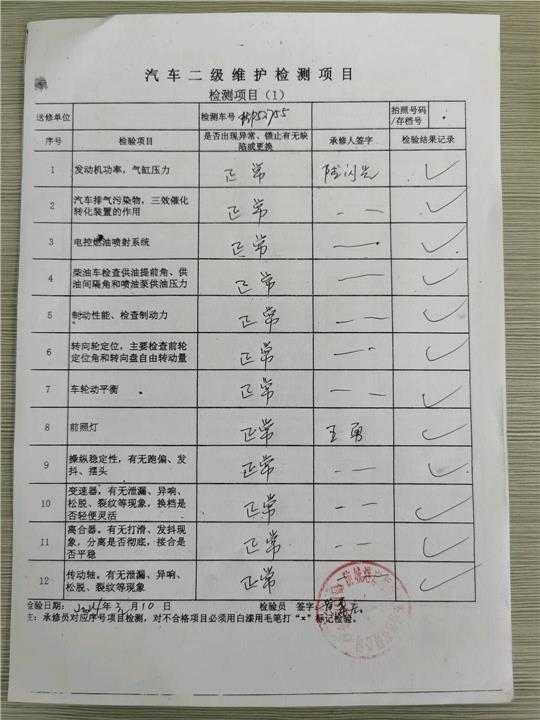 汽车二级维护检测项目
检测项目（1）
送修单位 检测车号 拍照号码/存档号
序号 检验项目 是否出现异常、锁止有无缺陷或更换 承修人签字 检验结果记录
1 发动机功率，气缸压力 正常 ✓
2 汽车排气污染物，三效催化转化装置的作用 正常 — — ✓
3 电控燃油喷射系统 正常 — — ✓
4 柴油车检查供油提前角、供油间隔角和喷油泵供油压力 正常 — — ✓
5 制动性能、检查制动力 正常 — — ✓
6 转向轮定位，主要检查前轮定位角和转向盘自由转动量 正常 — — ✓
7 车轮动平衡 正常 — — ✓
8 前照灯 正常 王勇 ✓
9 操纵稳定性，有无跑偏、发抖、摆头 正常 — — ✓
10 变速器，有无泄漏、异响、松脱、裂纹等现象，换档是否轻便灵活 正常 — — ✓
11 离合器。有无打滑、发抖现象，分离是否彻底，接合是否平稳 正常 — — ✓
12 传动轴。有无泄漏、异响、松脱、裂纹等现象 正常 — ✓
检验日期： 年3月10日 检验员 签字：
主：承修员对应序号项目检测，对不合格项目必须用白漆用毛笔打“×”标记检验。